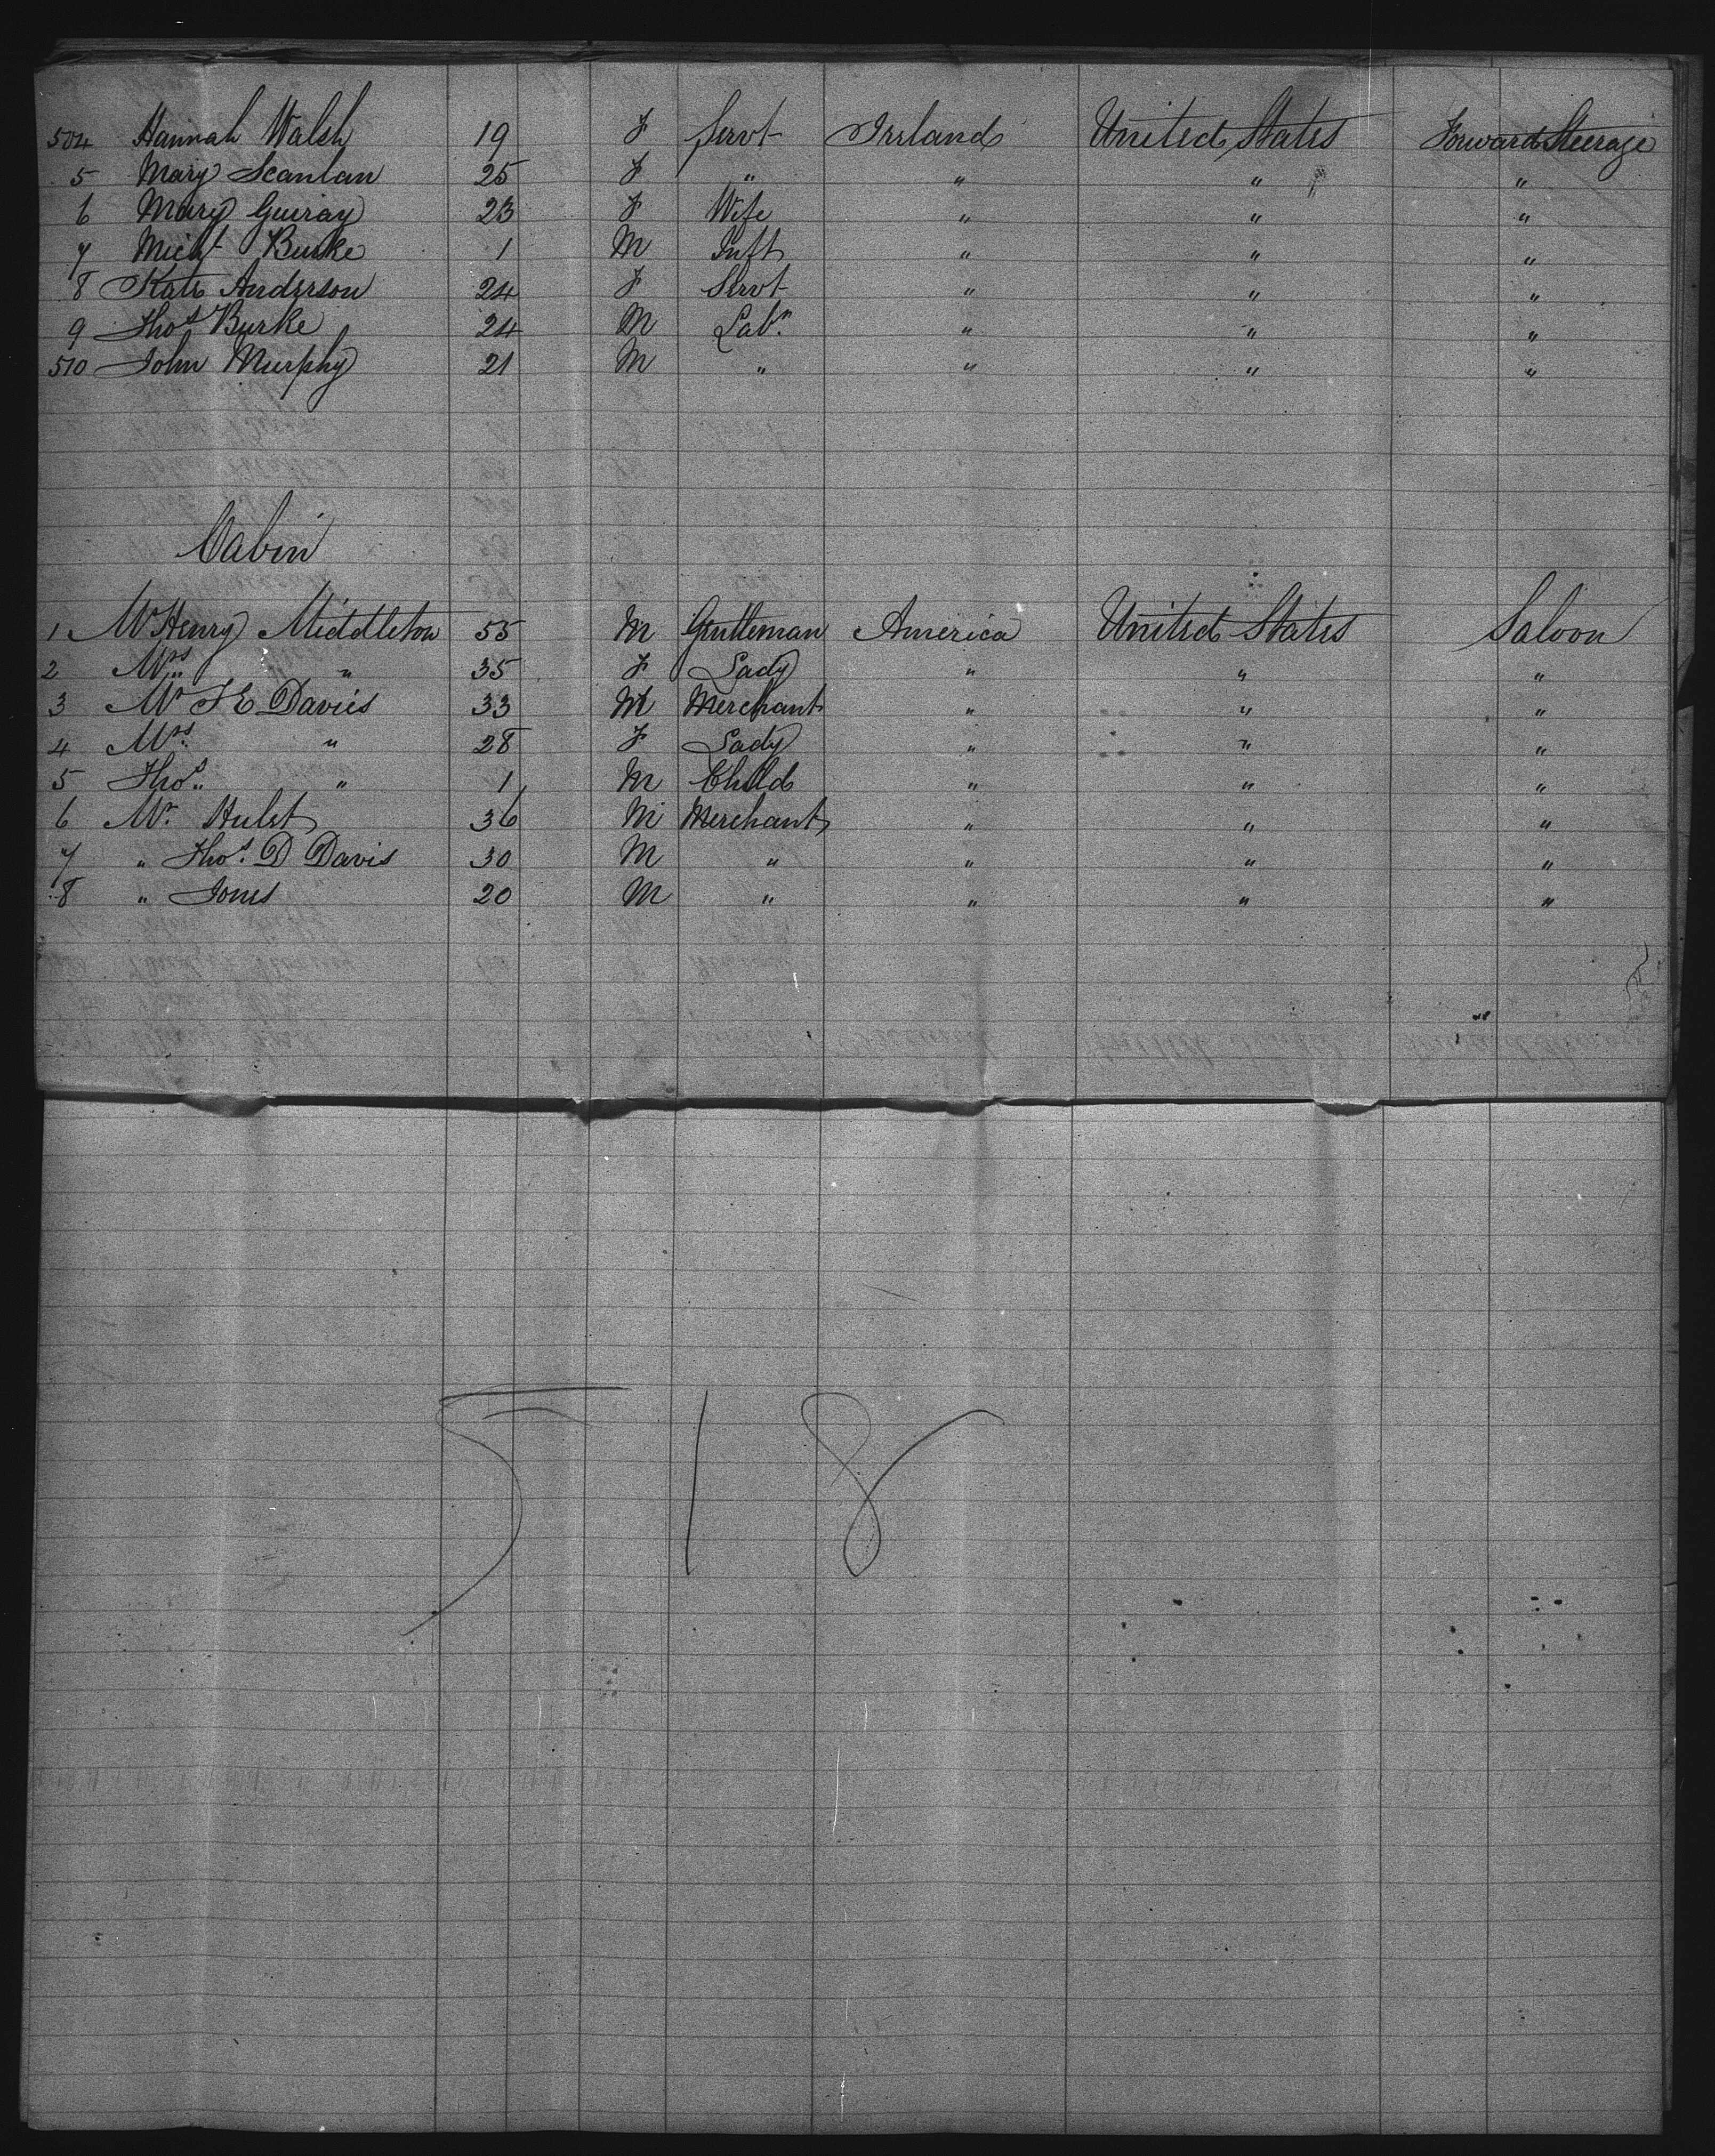 504 Hannah Walsh 19 F Servt Ireland United States Forward Steerage
5 Mary Scanlan 25 F " " " "
6 Mary Guiray 23 F Wife " " "
7 Michl Burke 1 M Inft " " "
8 Kate Anderson 24 F Servt " " "
9 Thos Burke 24 M Labr " " "
510 John Murphy 21 M " " " "
Cabin
1 Mr Henry Middleton 55 M Gentleman America United States Saloon
2 Mrs " " 35 F Lady " " "
3 Mr T E Davies 33 M Merchant " " "
4 Mrs " 28 F Lady " " "
5 Thos. " 1 M Child " " "
6 Mr. Hulst 36 M Merchant " " "
7 " Thos. D Davis 30 M " " " "
8 " Jones 20 M " " " "
518